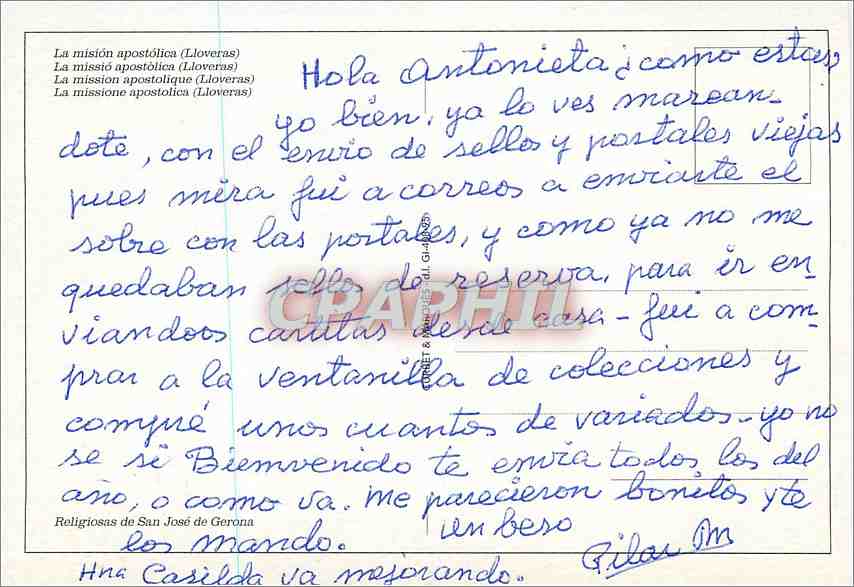 La misión apostólica (Lloveras)
La missió apostòlica (Lloveras)
La mission apostolique (Lloveras)
La missione apostolica (Lloveras)
Hola Antonieta ¿como estas?
yo bien, ya lo ves marean-
dote, con el envio de sellos y postales viejas
pues mira fui a correos a enviarte el
sobre con las postales, y como ya no me
quedaban sellos de reserva, para ir en-
viandoos cartitas desde casa - fui a com-
prar a la ventanilla de colecciones y
compré unos cuantos de variados - yo no
se si Biemvenido te envia todos los del
año, o como va. me parecieron bonitos y te
los mando.
un beso
Pilar M
Hna Casilda va mejorando.
Religiosas de San José de Gerona
d.l. GI-400-95
CPAPHIL